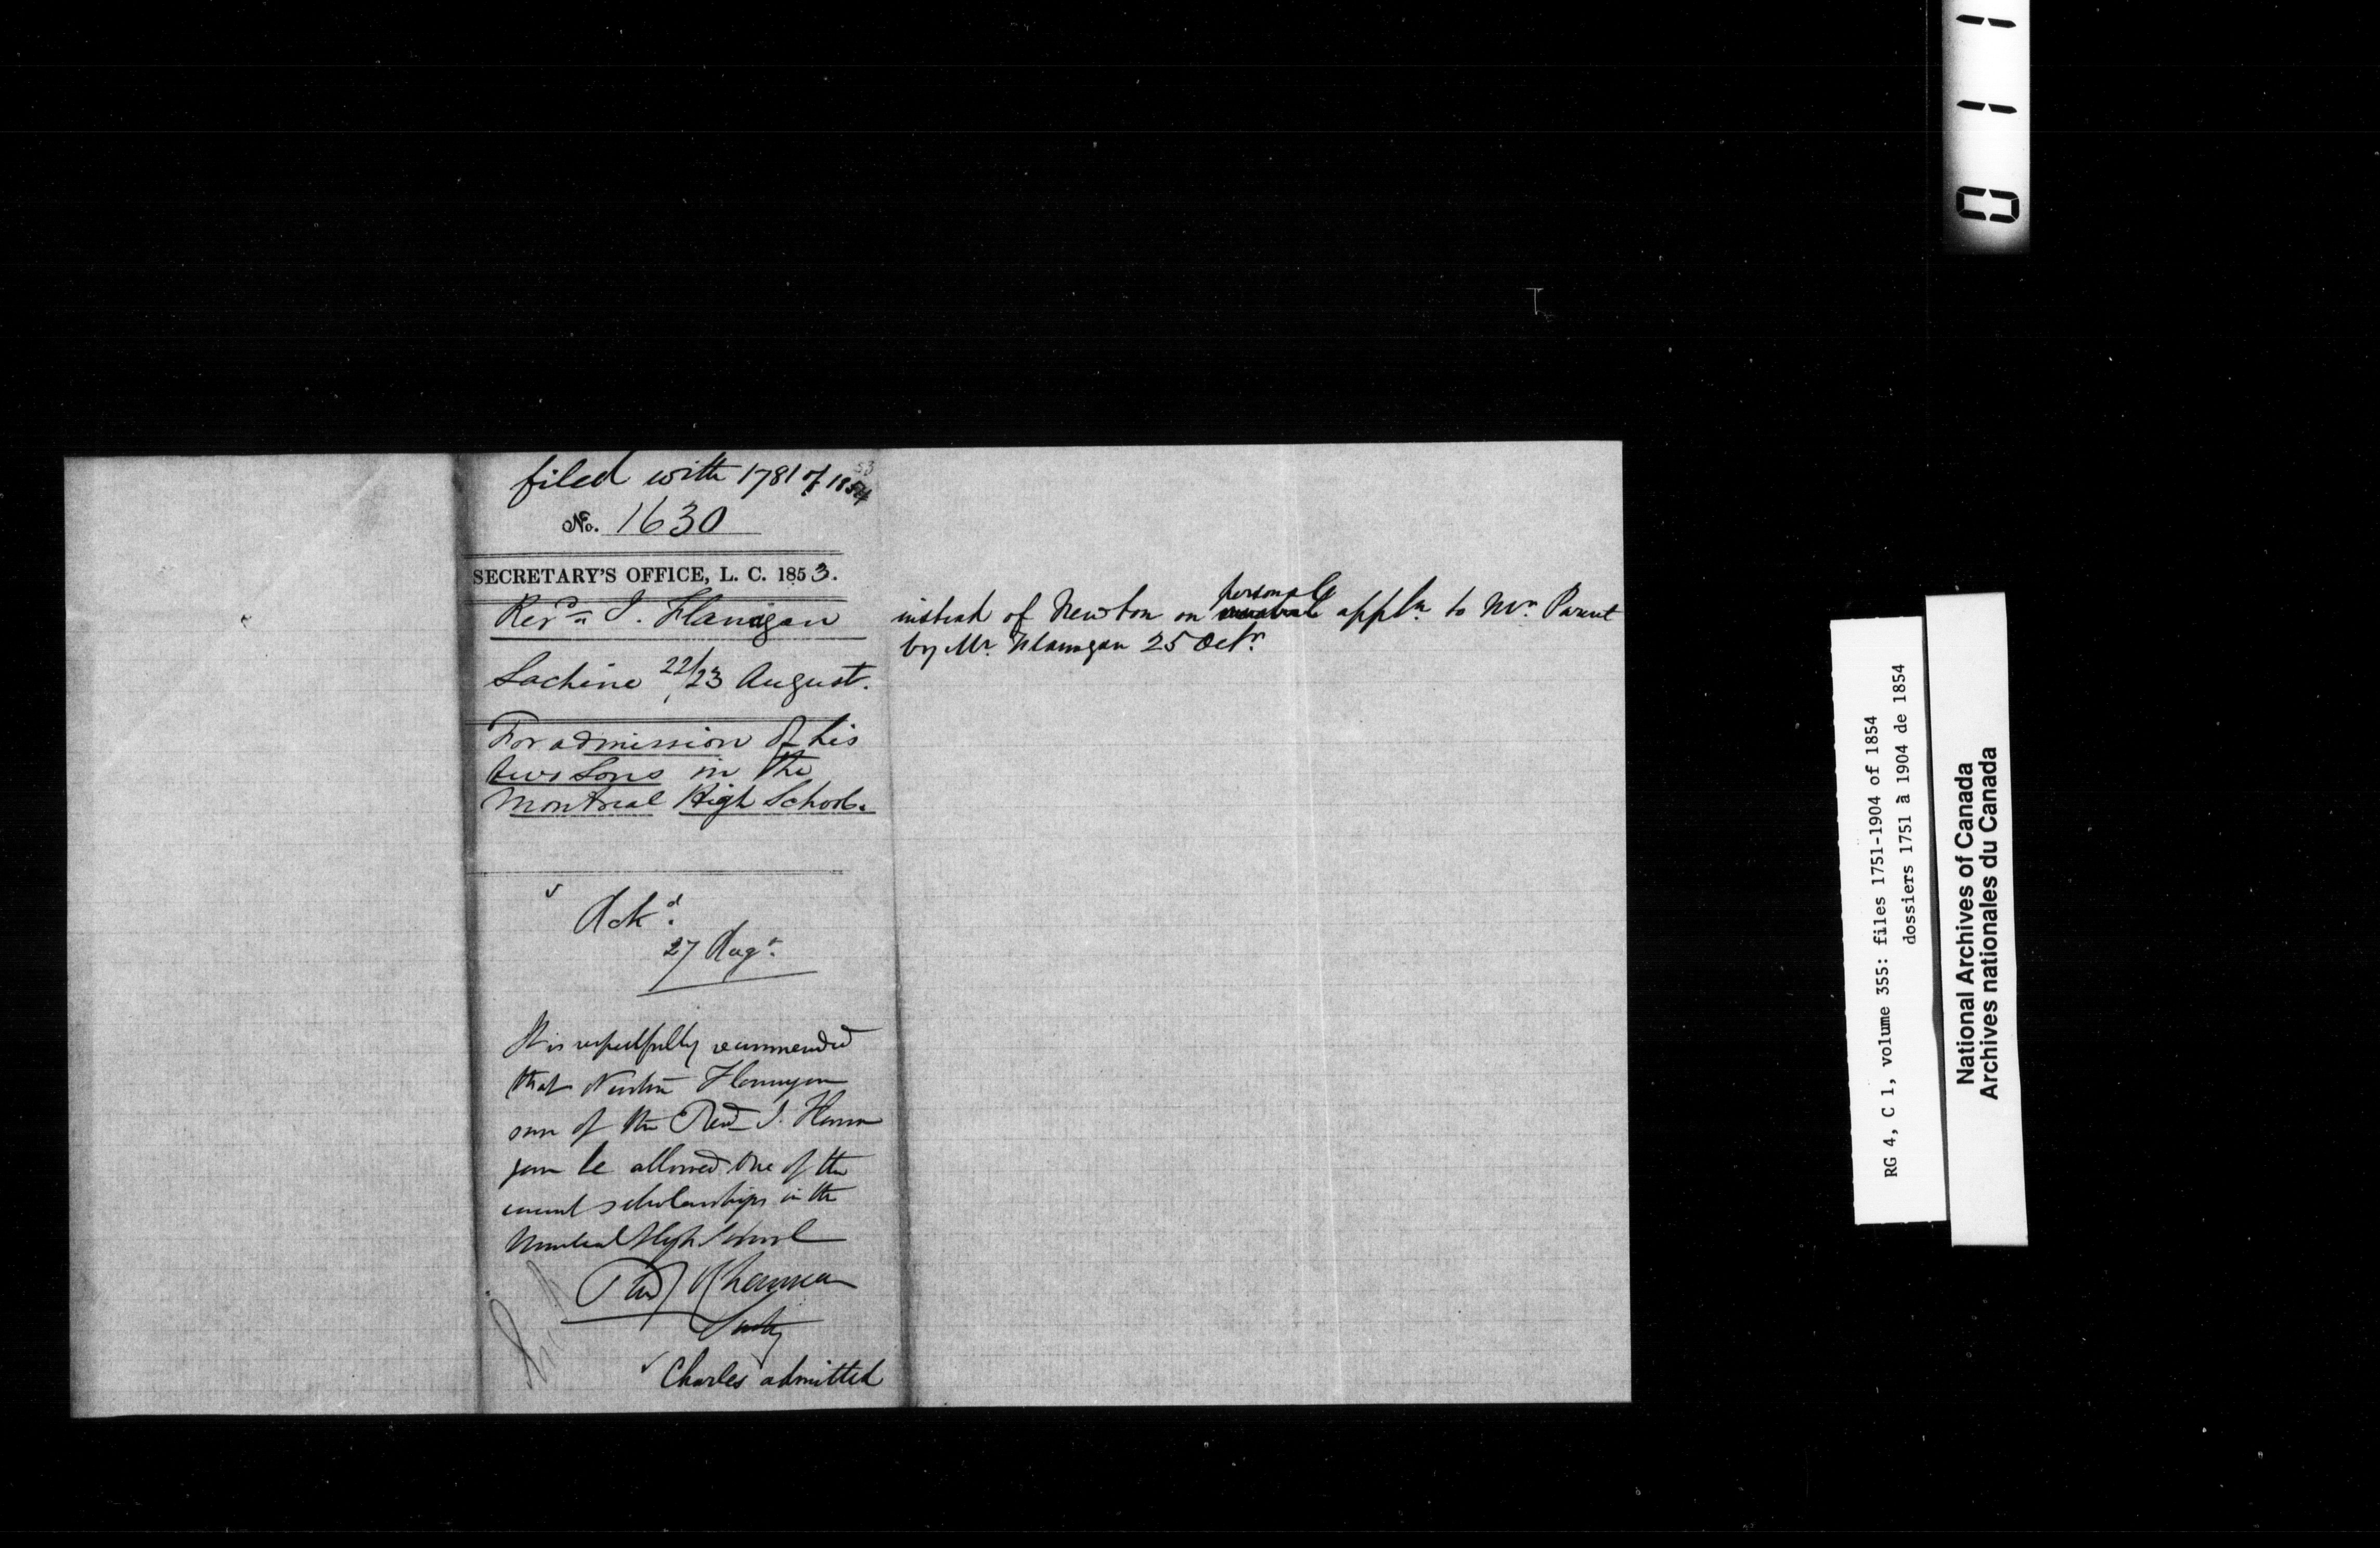 filed with 1781 of 1854
53
No. 1630
SECRETARY'S OFFICE, L. C. 1853.
Revd. J. Flanagan
Lachine 22/23 August.
For admission of his
two Sons in the
Montreal High School.
Ackd.
27 Augt.
It is respectfully recommended
that Newton Flanagan
son of the Revd. J. Flana
gan be allowed one of the
vacant scholarships in the
Montreal High School
Secty
Charles admitted
instead of Newton on personal appln. to Mr. Parent
by Mr. Flanagan 25 Octr.
0 1 1
RG 4, C 1, volume 355: files 1751-1904 of 1854
dossiers 1751 à 1904 de 1854
National Archives of Canada
Archives nationales du Canada